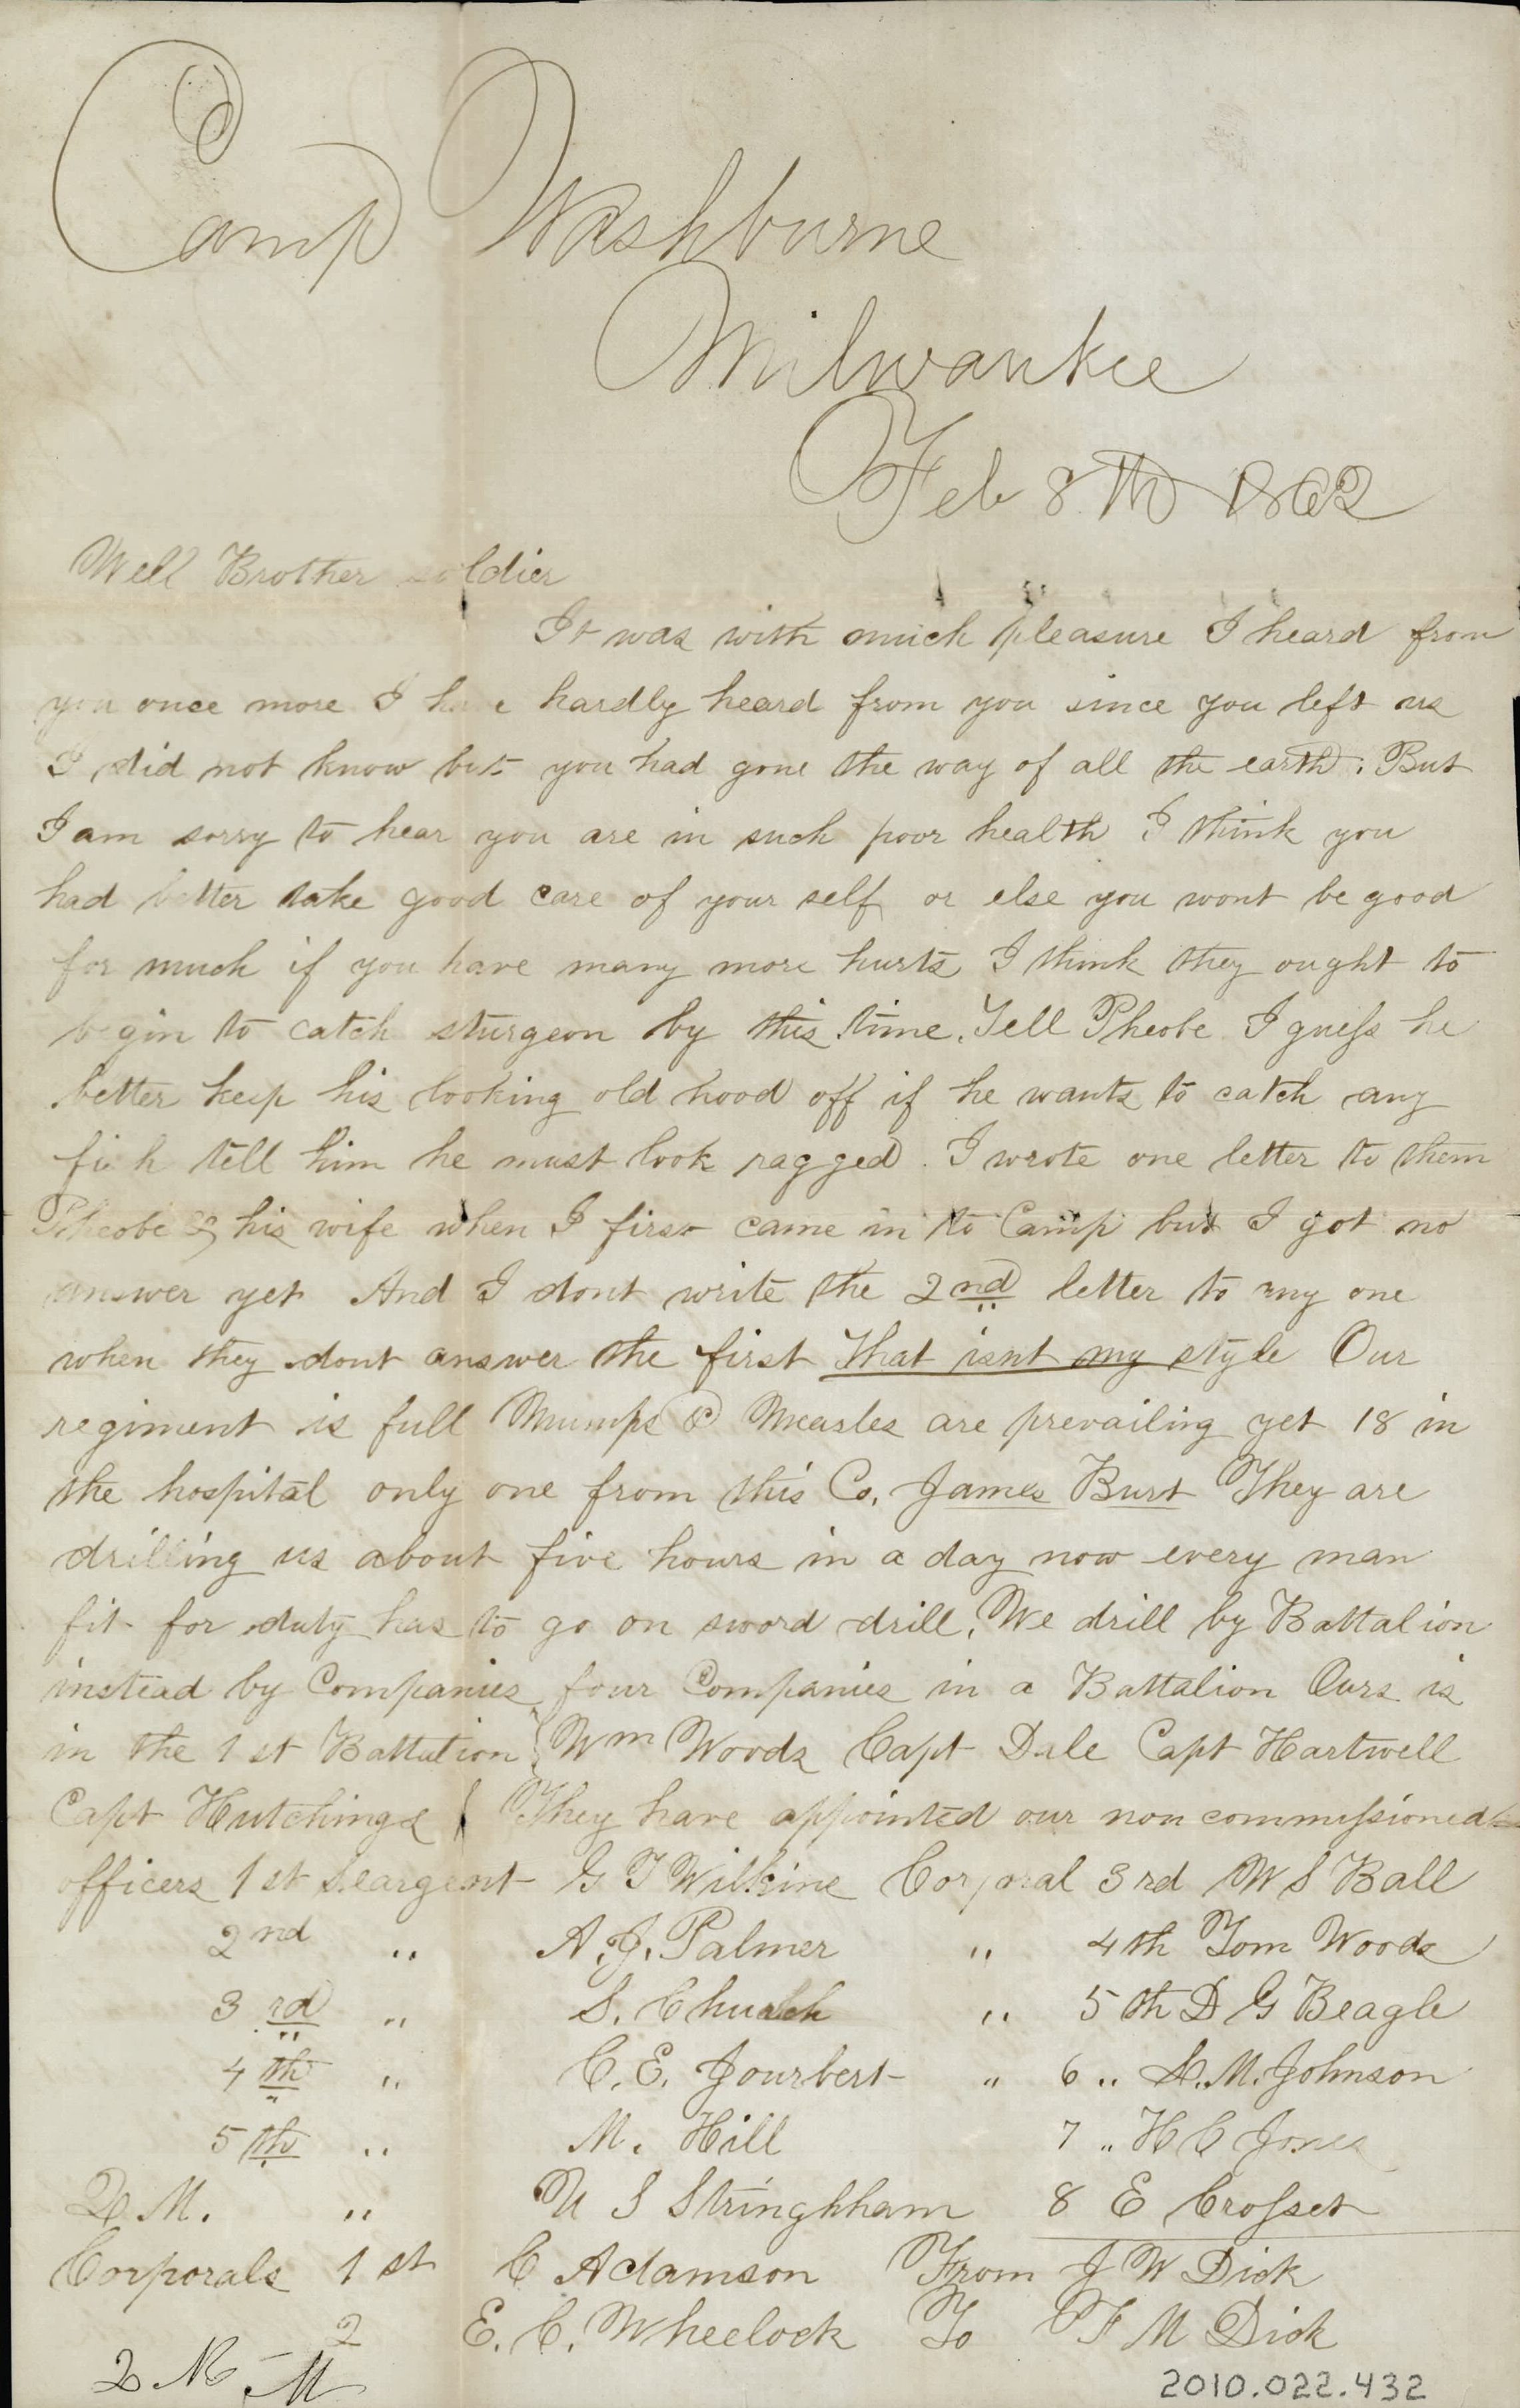 Camp Washburne
Milwaukee
Feb 8th 1862
Well Brother soldier
It was with much pleasure I heard from
you once more I have hardly heard from you since you left us
I did not know but you had gone the way of all the earth. But
I am sorry to hear you are in such poor health I think you
had better take good care of your self or else you wont be good
for much if you have many more hurts I think they ought to
begin to catch sturgeon by this time. Tell Pheobe I guess he
better keep his looking old hood off if he wants to catch any
fish tell him he must look ragged. I wrote one letter to them
Pheobe & his wife when I first came in to Camp but I got no
answer yet And I dont write the 2nd letter to any one
when they dont answer the first That isnt my style Our
regiment is full Mumps & Measles are prevailing yet 18 in
the hospital only one from this Co. James Burt They are
drilling us about five hours in a day now every man
fit for duty has to go on sword drill. We drill by Battalion
instead by Companies four Companies in a Battalion Ours is
in the 1st Battalion { Wm Woods Capt Dale Capt Hartwell
Capt Hutchings } They have appointed our non commissioned
officers 1st Seargent G T Wilkine Corporal 3rd W S Ball
2nd " A. J. Palmer " 4th Tom Woods
3rd " S. Church " 5th D G Beagle
4th " C. E. Jourbert " 6 " L. M. Johnson
5th " M. Hill 7 " H C Jones
Q M. " N S Stringhham 8 E Crosset
Corporals 1st C Adamson From J W Dick
2 E. C. Wheelock To F M Dick
2010.022.432